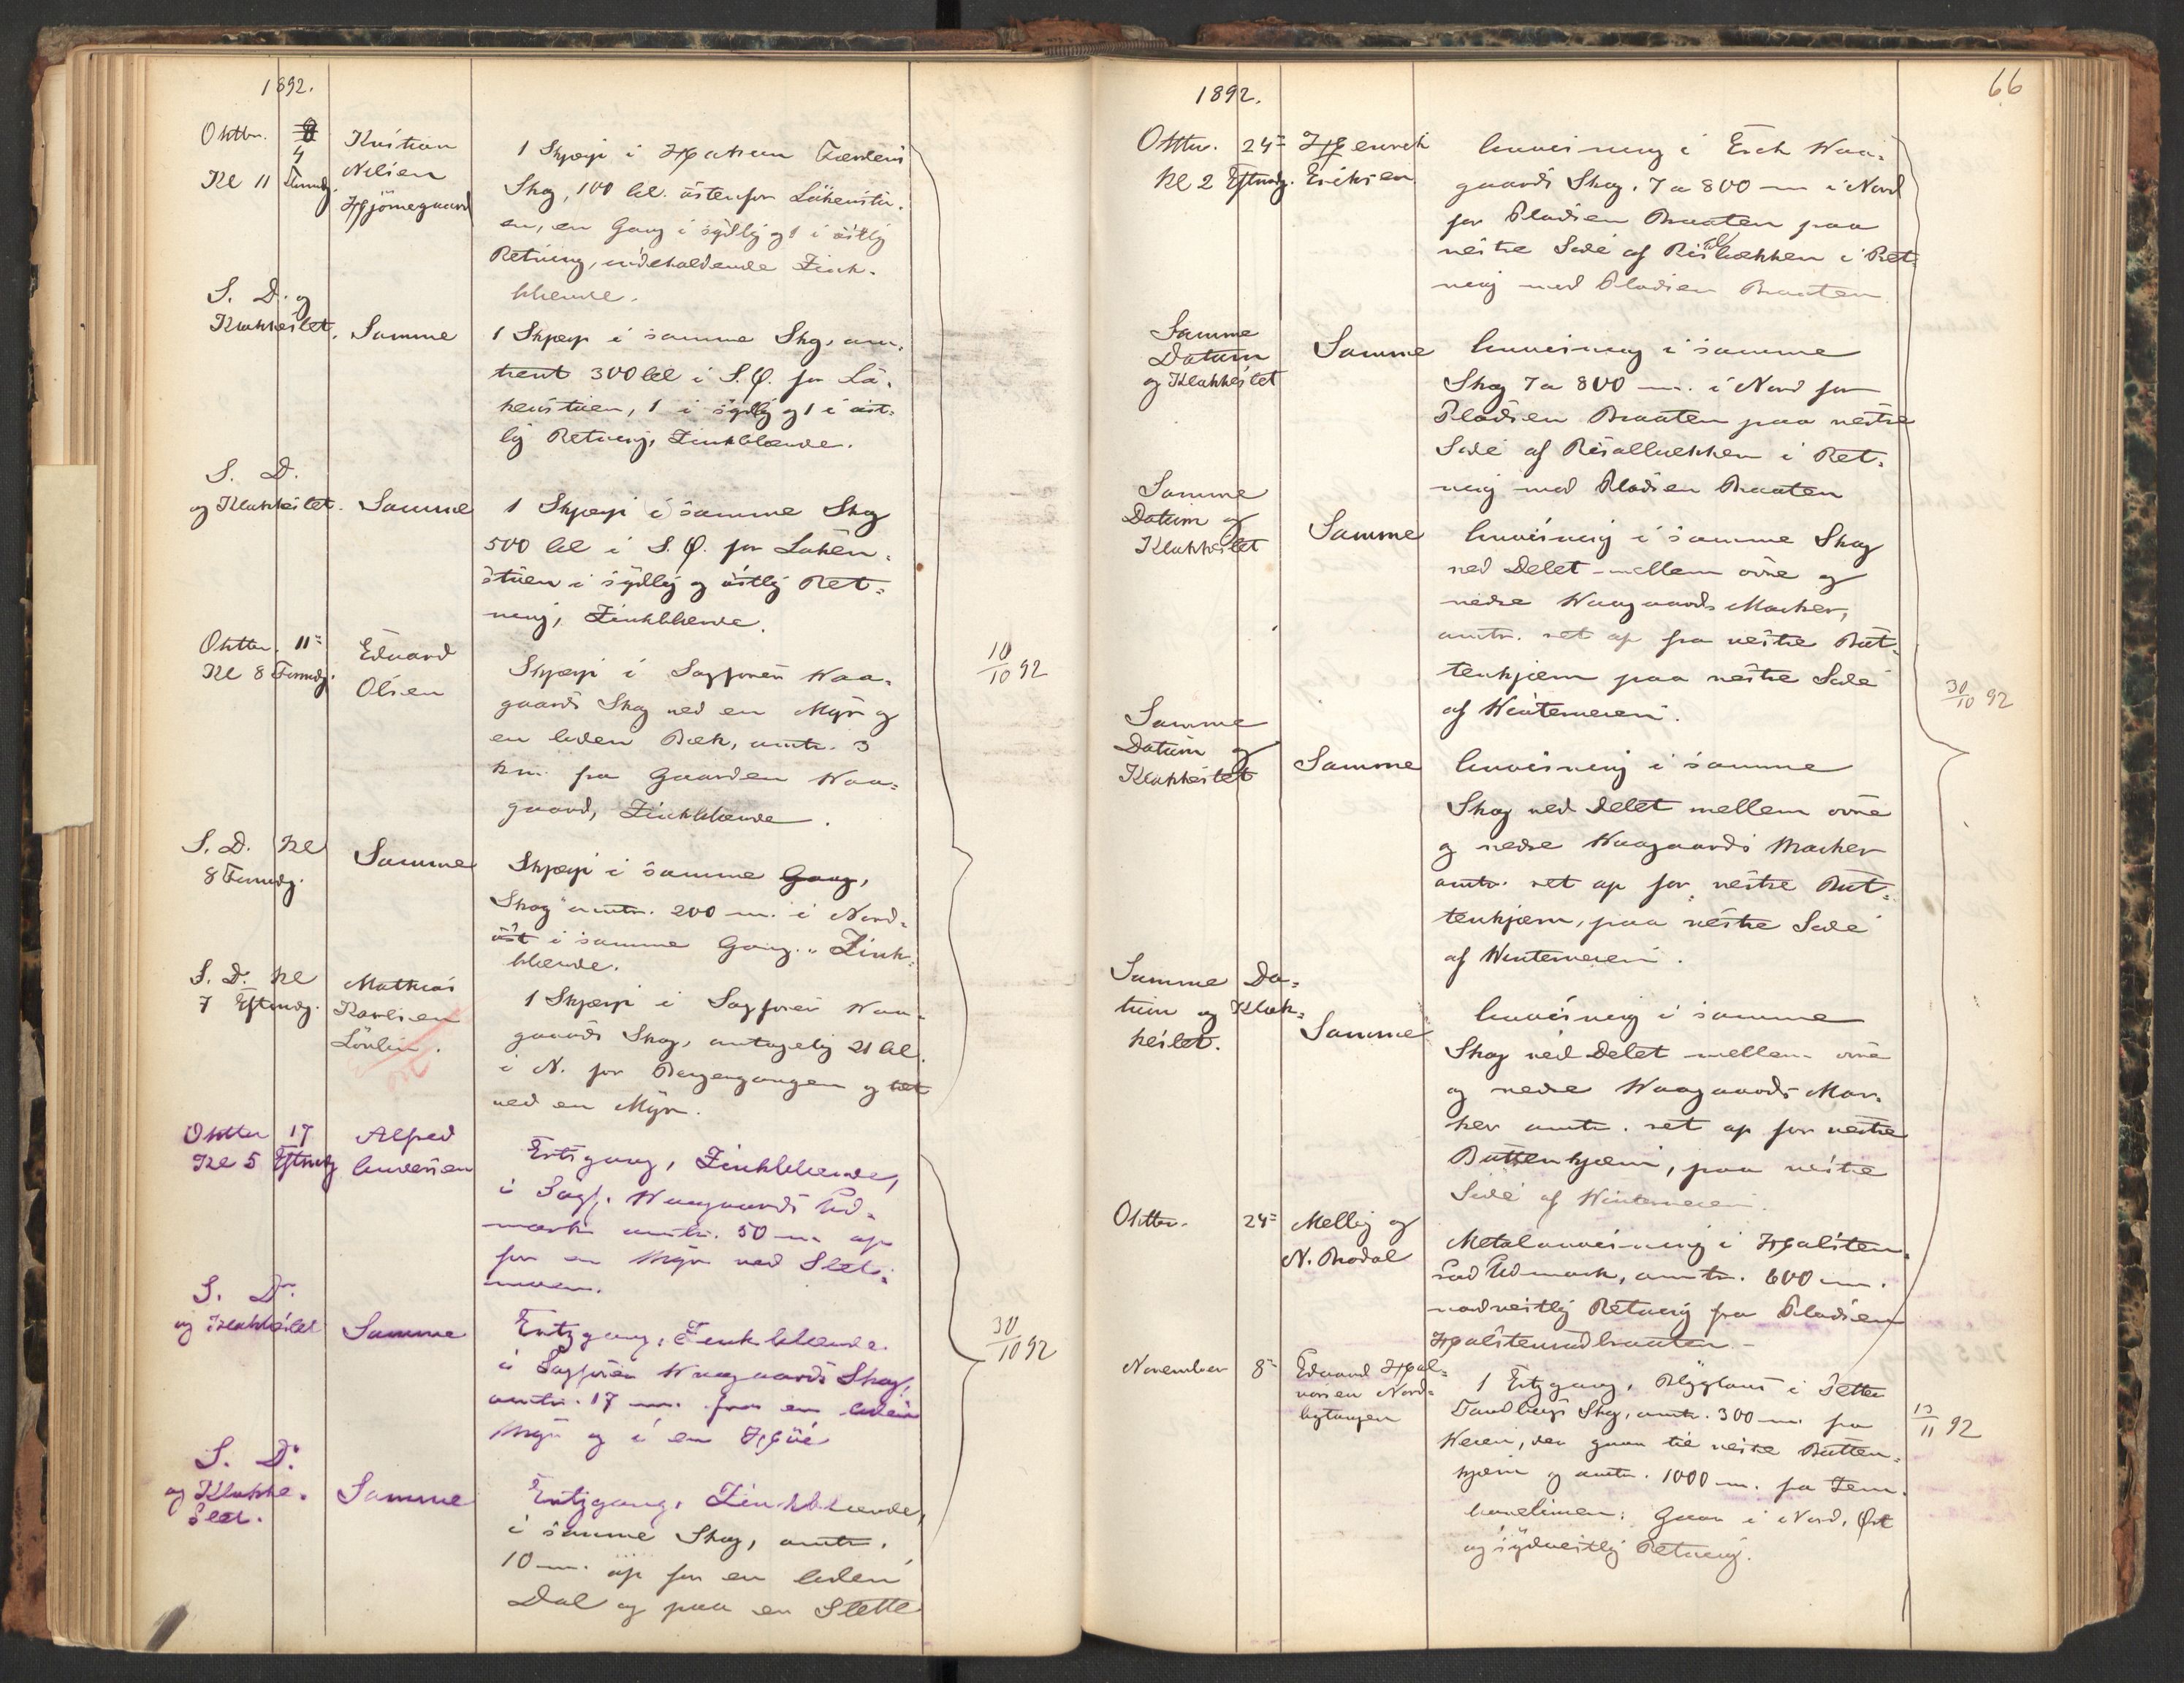 1892.
Oktbr. 4
Kl 11 Formdg.
Kristian
Nilsen
Hjörnegaard
1 Skjærp i Haakon
Skog, 100 al. östenfor Lökenstu-
en, en Gang i sydlig og 1 i östlig
Retning, indeholdende Zink-
blende.
S. D. og
Klokkeslet.
Samme
1 Skjærp i samme Skog, om-
trent 300 al i S.Ø. for Lö-
kenstuen, 1 i sydlig og 1 i öst-
lig Retning, Zinkblende.
S. D.
og Klokkeslet.
Samme
1 Skjærp i samme Skog
500 al i S.Ø. for Löken-
stuen i sydlig og östlig Ret-
ning, Zinkblende.
Oktbr. 11-
Kl 8 Formdg.
Edvard
Olsen
Skjærp i Sagforen Waa-
gaards Skog ved en Myr og
en liden Bæk, omtr. 3
km. fra Gaarden Waa-
gaard, Zinkblende.
10/10 92
S. D. Kl
8 Formdg.
Samme
Skjærp i samme Gang,
Skog omtr. 200 m. i Nord-
öst i samme Gang. Zink-
blende.
S. D. Kl
7 Eftmdg.
Mathias
Karlsen
1 Skjærp i Sagforen Waa-
gaards Skog, antagelig 21 al.
i N. for Bergergangen og tet
ved en Myr.
Oktbr 17
Kl 5 Eftmdg
Alfred
Andersen
Ertsgang, Zinkblende,
i Sagf. Waagaards Ud-
mark omtr. 50 m op
for en Myr ved Slets-
moen.
S. D.
og Klokkeslet
Samme
Ertzgang, Zinkblende
i Sagforen Waagaards Skog,
omtr. 17 m. fra en liden
Myr og i en Höi
30/10 92
S. D.
og Klokke-
slet.
Samme
Ertzgang, Zinkblende,
i samme Skog, omtr.
10 m. op for en liden
Dal og paa en Slette
66
1892.
Oktbr. 24-
Kl 2 Eftmdg.
Henrik
Eriksen
Anvisning i Erik Waa-
gaards Skog, 7 a 800 m i Nord
for Pladsen Braaten paa
vestre Side af Risalbækken i Ret-
ning med Pladsen Braaten.
Samme
Datum
og Klokkeslet
Samme
Anvisning i samme
Skog 7 a 800 m. i Nord for
Pladsen Braaten paa vestre
Side af Risalbækken i Ret-
ning med Pladsen Braaten
Samme
Datum og
Klokkeslet
Samme
Anvisning i samme Skog
ved Delet mellem övre og
nedre Waagaards Marker,
omtr. ret op fra vestre But-
tenkjern paa vestre Side
af Winterveien.
30/10 92
Samme
Datum og
Klokkeslet
Samme
Anvisning i samme
Skog ved Delet mellem övre
og nedre Waagaards Marker
omtr. ret op for vestre But-
tenkjern, paa vestre Side
af Winterveien.
Samme Da-
tum og Klok-
keslet.
Samme
Anvisning i samme
Skog ved Delet mellem övre
og nedre Waagaards Mar-
ker omtr. ret op for vestre
Buttenkjern, paa vestre
Side af Winterveien.
Oktbr. 24-
Melby og
N. Brodal
Metalanvisning i Halsten-
rud Udmark, omtr. 600 m.
nordvestlig Retning fra Pladsen
Halstenrudbraaten -
November 8-
Edvard Hal-
vorsen Nord-
bytangen
1 Ertzgang, Blyglans i Petter
Tandbergs Skog, omtr. 300 m. fra
Weien, der gaar til vestre Butten-
kjern og omtr. 1000 m. fra Jern-
banelinien; Gaar i Nord, Öst
og sydvestlig Retning.
13/11 92